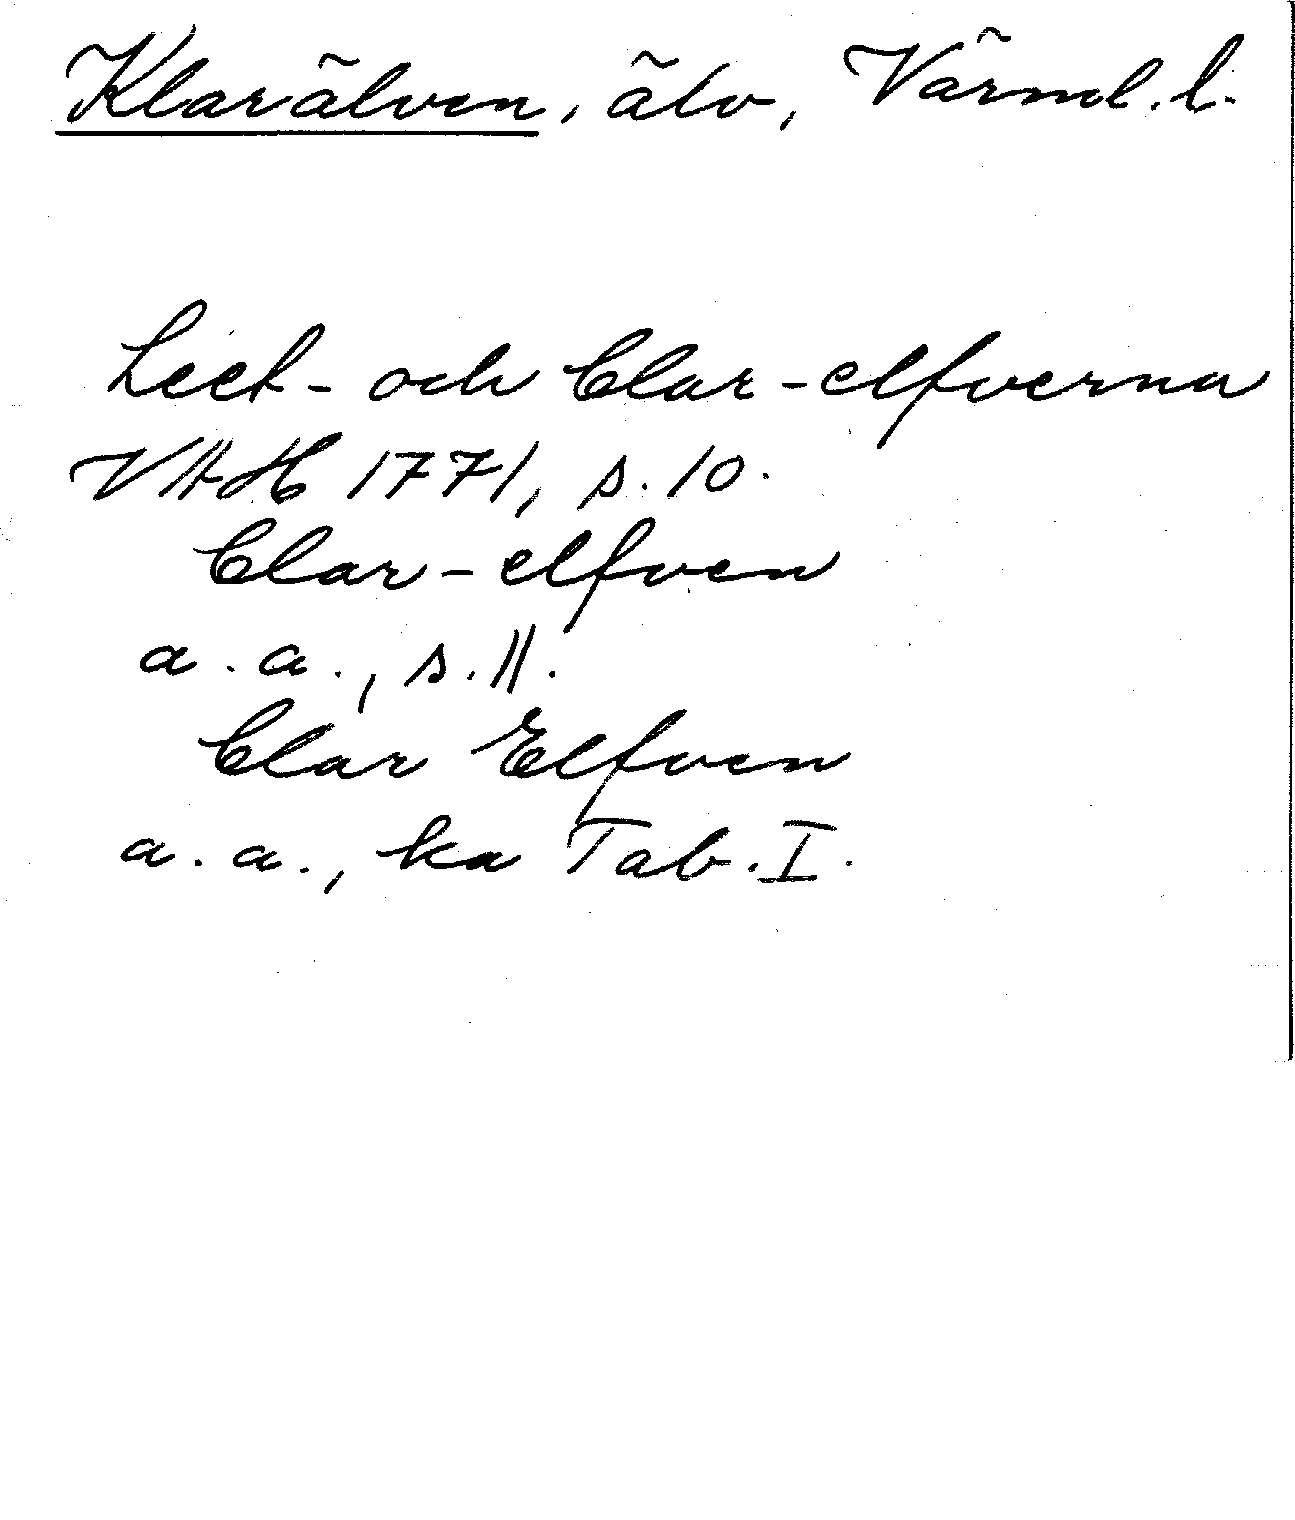 Klarälven, älv, Värml. l.
Leet- och Clar-elfverna
VAH 1771, s. 10.
Clar-elfven
a. a., s. 11.
Clar Elfven
a. a., ka Tab. I.